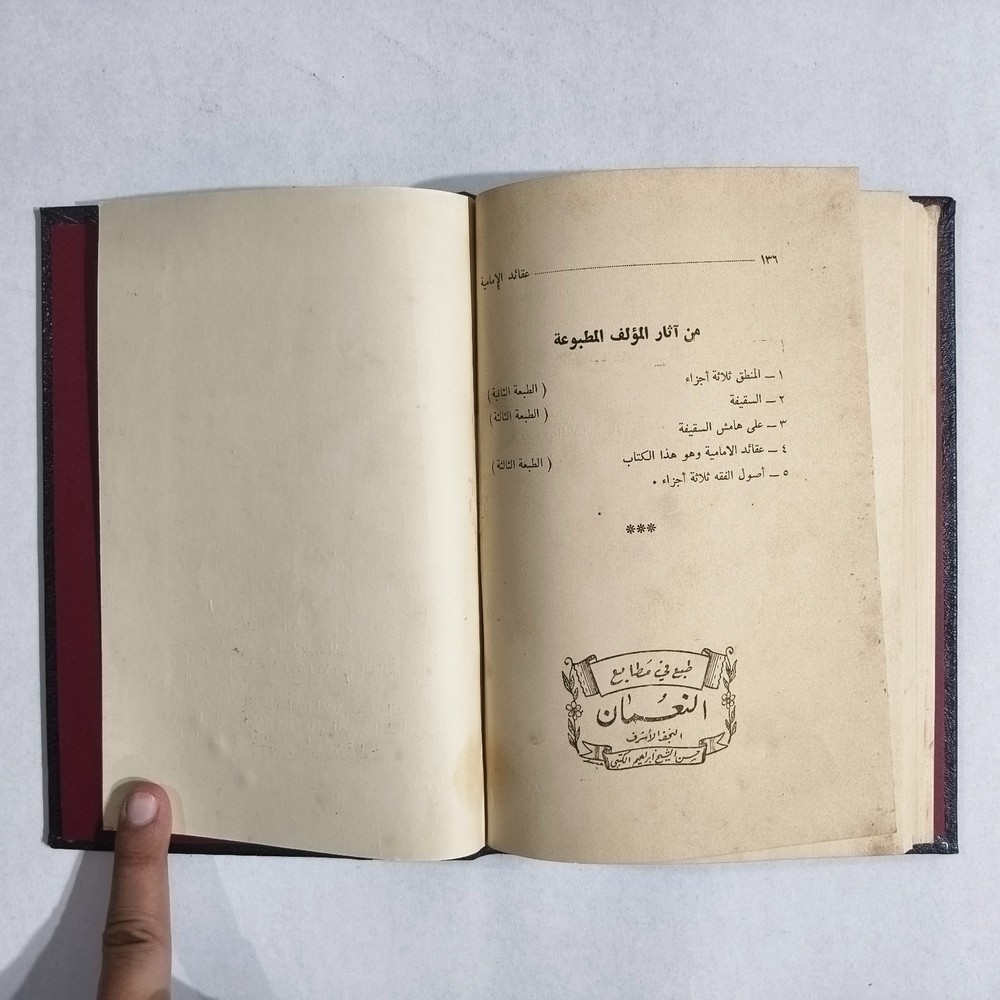 ١٣٦ عقائد الإمامية
من آثار المؤلف المطبوعة
١ ـ المنطق ثلاثة أجزاء ( الطبعة الثانية )
٢ ـ السقيفة ( الطبعة الثالثة )
٣ ـ على هامش السقيفة
٤ ـ عقائد الامامية وهو هذا الكتاب ( الطبعة الثالثة )
٥ ـ أصول الفقه ثلاثة أجزاء .
***
طبع في مطابع
النعمان
النجف الأشرف
حسن الشيخ ابراهيم الكتبي